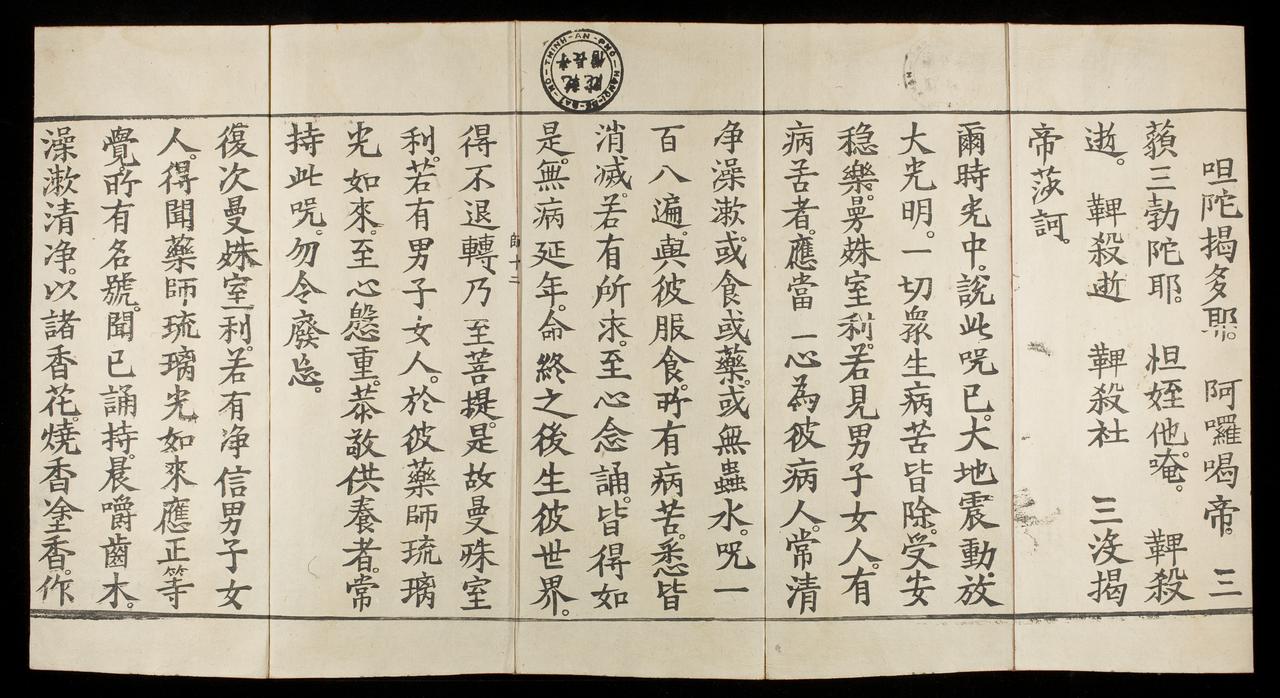 呾陀揭多耶。　阿囉喝帝。　三
藐三勃陀耶。　怛姪他。唵。　鞞殺
逝。　鞞殺逝　鞞殺社　三沒揭
帝莎訶。
爾時光中。說此咒已。大地震動。放
大光明。一切眾生病苦皆除。受安
穩樂。曼姝室利。若見男子女人。有
病苦者。應當一心為彼病人。常清
净澡漱。或食或藥。或無蟲水。咒一
百八遍。與彼服食。所有病苦。悉皆
消滅。若有所求。至心念誦。皆得如
是。無病延年。命終之後生彼世界。
師十三
得不退轉乃至菩提。是故曼殊室
利。若有男子女人。於彼藥師琉璃
光如來。至心慇重。恭敬供養者。常
持此咒。勿令廢忘。
復次曼姝室利。若有净信男子女
人。得聞藥師琉璃光如來應正等
覺。所有名號。聞已誦持。晨嚼齒木。
澡漱清净。以諸香花。燒香塗香。作
THINH-AN-PHO